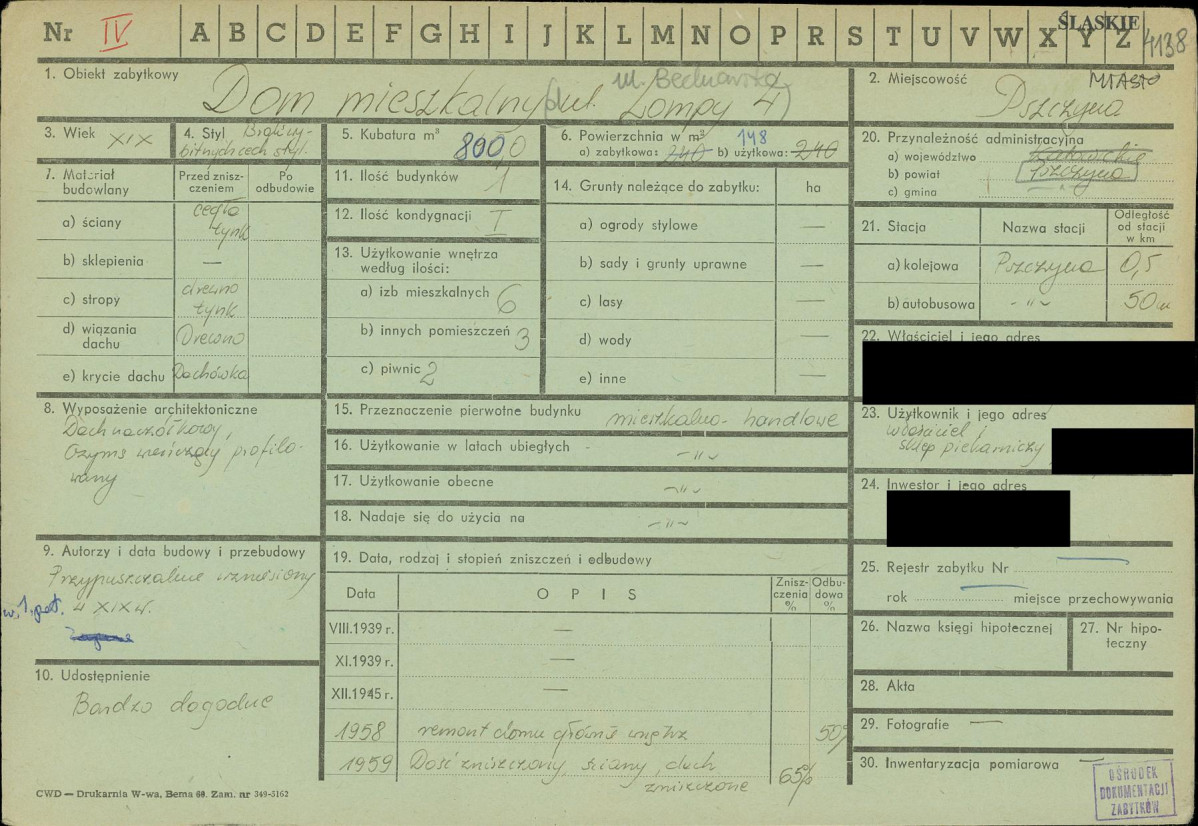 Nr IV A B C D E F G H I J K L M N O P R S T U V W X Y Z
ŚLĄSKIE
4138
1. Obiekt zabytkowy
ul. Bednarska
Dom mieszkalny (ul. Lompy 4)
2. Miejscowość
MIASTO
Pszczyna
3. Wiek XIX
4. Styl Brak wy-
bitnych cech styl.
5. Kubatura m³
800
6. Powierzchnia w m³ 148
a) zabytkowa: 240 b) użytkowa: 240
20. Przynależność administracyjna
a) województwo Katowickie
b) powiat Pszczyna
c) gmina
7. Materiał budowlany
Przed zniszczeniem
Po odbudowie
a) ściany cegła
tynk
b) sklepienia —
c) stropy drewno
tynk
d) wiązania dachu Drewno
e) krycie dachu Dachówka
11. Ilość budynków 1
12. Ilość kondygnacji I
13. Użytkowanie wnętrza
według ilości:
a) izb mieszkalnych 6
b) innych pomieszczeń 3
c) piwnic 2
14. Grunty należące do zabytku: ha
a) ogrody stylowe —
b) sady i grunty uprawne —
c) lasy —
d) wody —
e) inne —
21. Stacja Nazwa stacji Odległość od stacji w km
a) kolejowa Pszczyna 0,5
b) autobusowa -"- 50 m
22. Właściciel i jego adres
23. Użytkownik i jego adres
właściciel i
sklep piekarniczy
24. Inwestor i jego adres
8. Wyposażenie architektoniczne
Dach naczółkowy,
Gzyms wieńczący profilo-
wany
15. Przeznaczenie pierwotne budynku mieszkalno-handlowe
16. Użytkowanie w latach ubiegłych -"-
17. Użytkowanie obecne -"-
18. Nadaje się do użycia na -"-
9. Autorzy i data budowy i przebudowy
Przypuszczalnie wzniesiony
w 1. poł.
XIX w.
10. Udostępnienie
Bardzo dogodne
19. Data, rodzaj i stopień zniszczeń i odbudowy
Data OPIS Zniszczenia % Odbudowa %
VIII.1939 r. —
XI.1939 r. —
XII.1945 r. —
1958 remont domu głównie wnętrz 50%
1959 Dość zniszczony, ściany, dach
zniszczone 65%
25. Rejestr zabytku Nr
rok miejsce przechowywania
26. Nazwa księgi hipotecznej
27. Nr hipoteczny
28. Akta
29. Fotografie —
30. Inwentaryzacja pomiarowa —
OŚRODEK
DOKUMENTACJI
ZABYTKÓW
CWD — Drukarnia W-wa, Bema 60. Zam. nr 349-5162